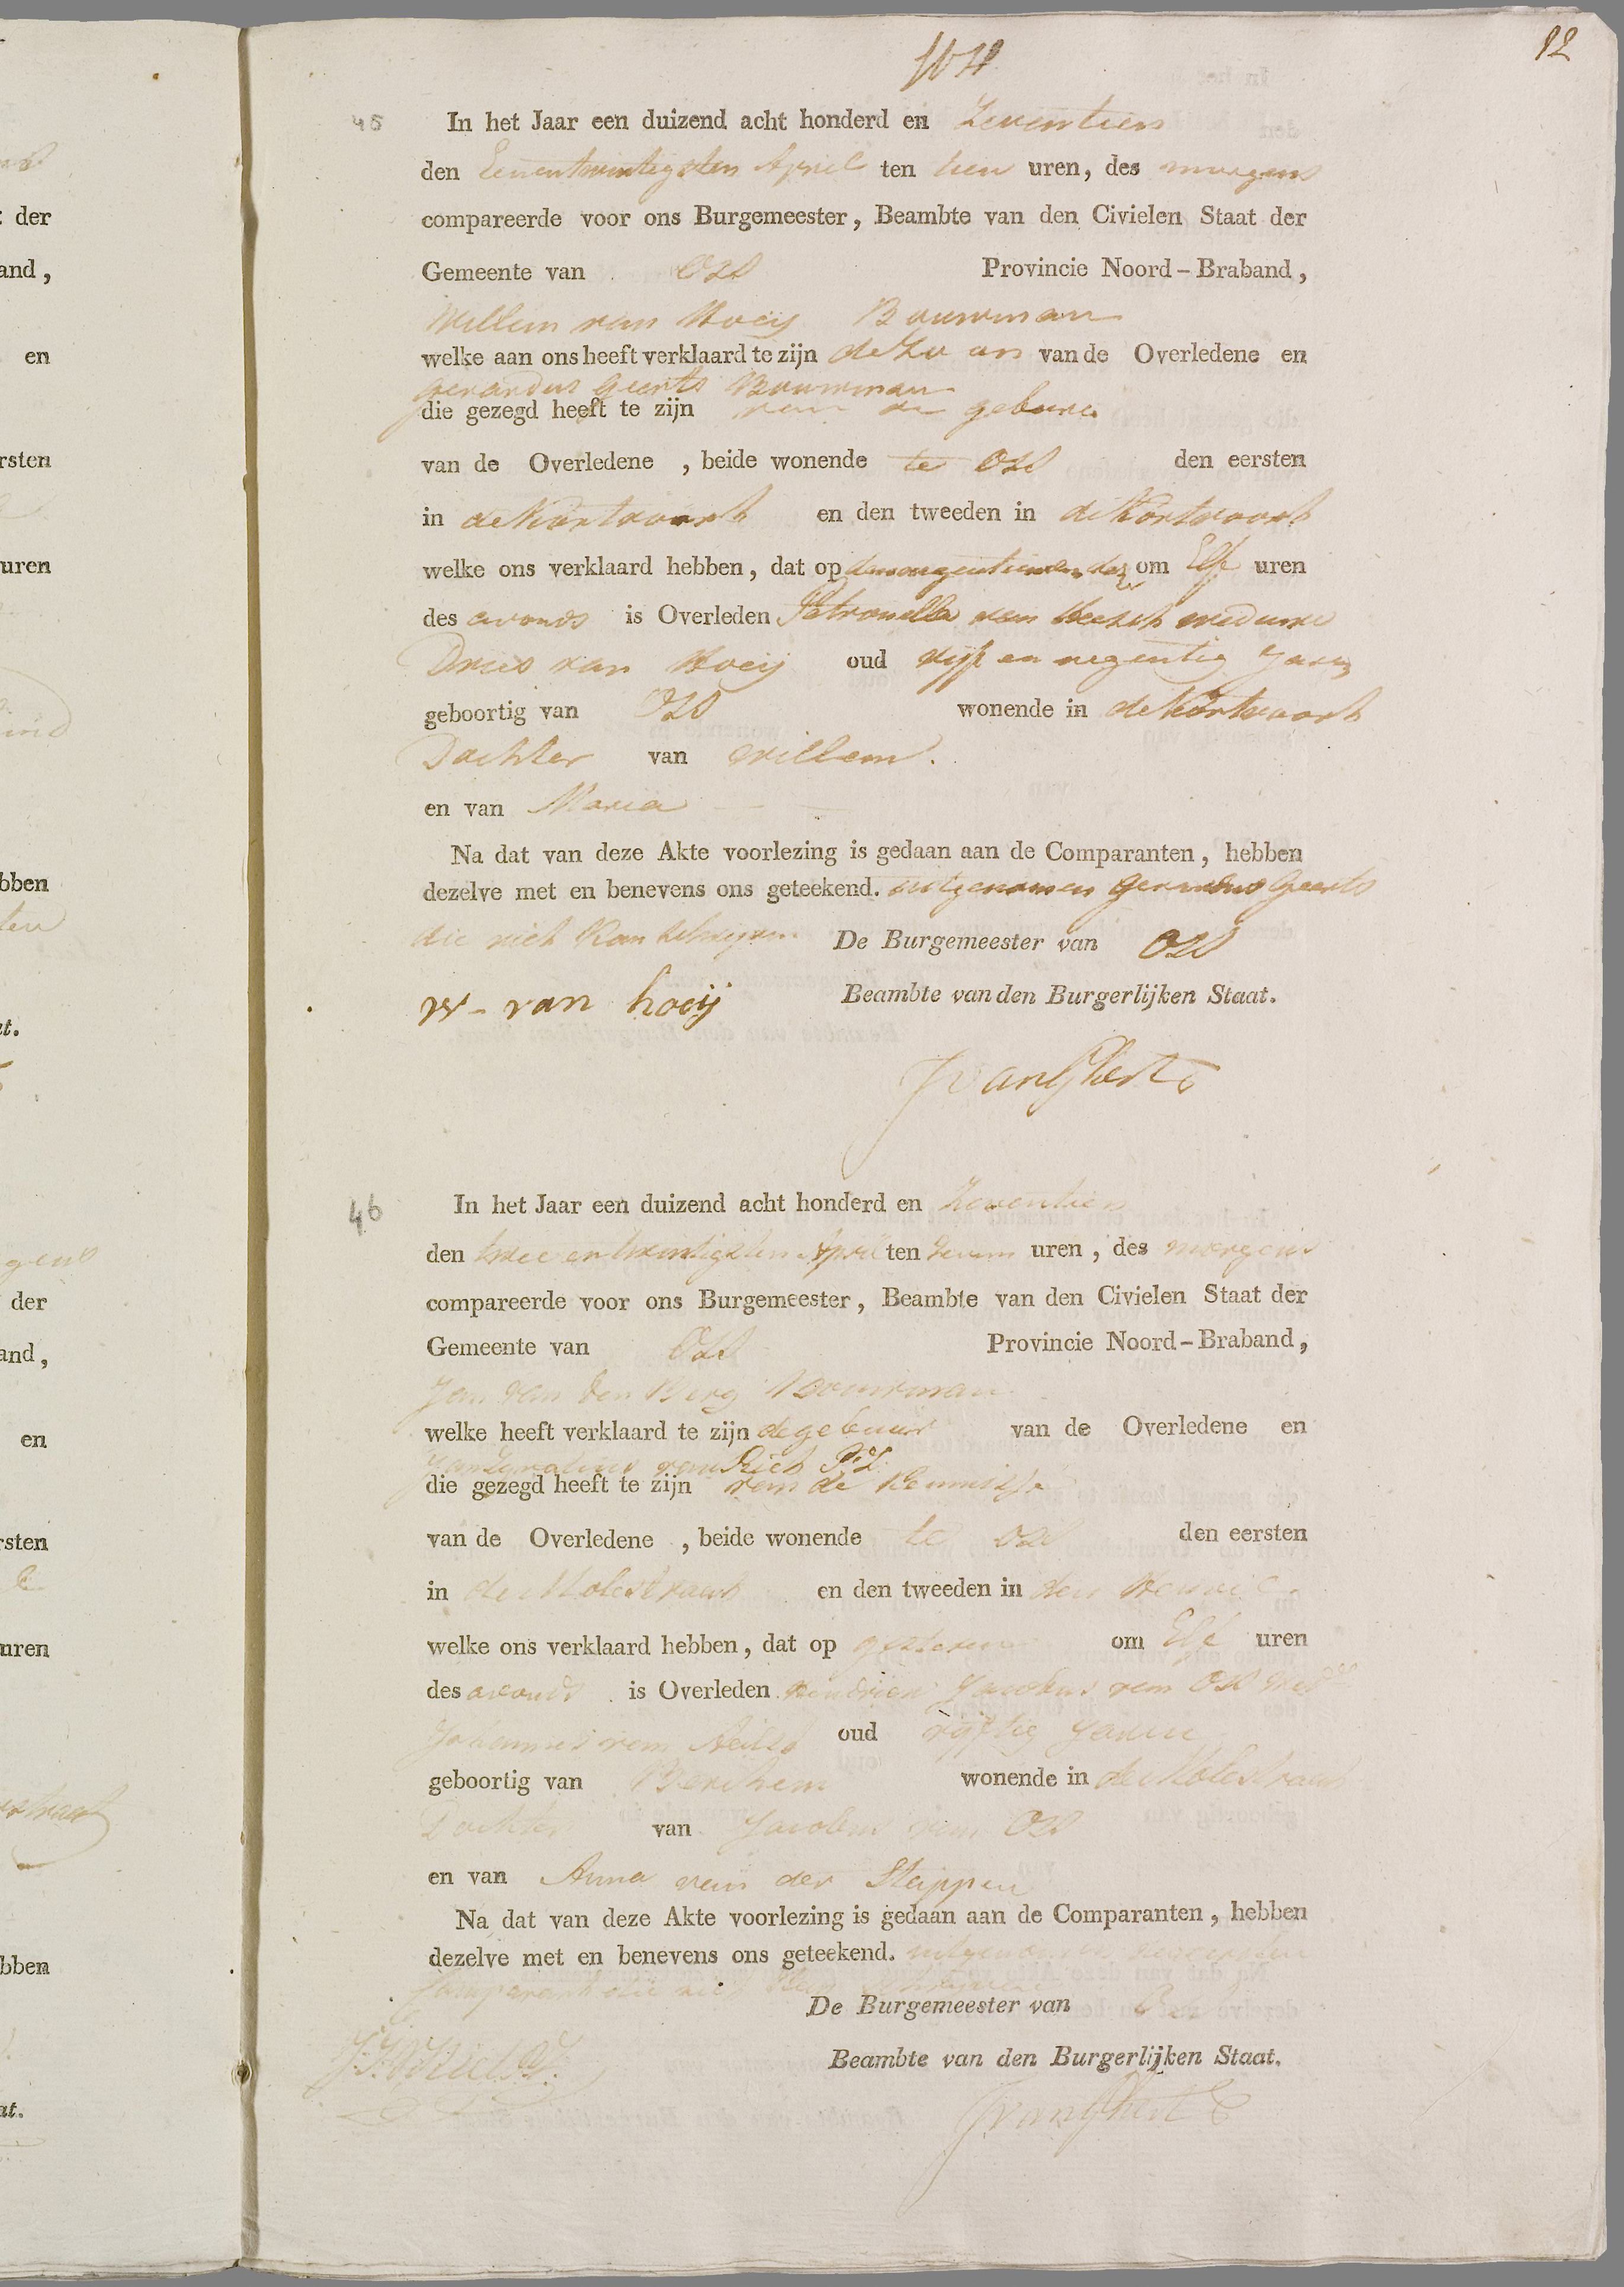 12
45 In het Jaar een duizend acht honderd en Zeventien
den Eenentwintigsten April ten tien uren, des morgens
compareerde voor ons Burgemeester, Beambte van den Civielen Staat der
Gemeente van Oss Provincie Noord-Braband,
Willem van Hoeij Bouwman
welke aan ons heeft verklaard te zijn de Zoon van de Overledene en
Gerardus Geerts Bouwman
die gezegd heeft te zijn van de gebure
van de Overledene, beide wonende te Oss den eersten
in de Kortvoort en den tweeden in de Kortvoort
welke ons verklaard hebben, dat op den negentienden dez om Elf uren
des avonds is Overleden Petronella van Heesch weduwe
Dries van Hoeij oud vijf en negentig Jaar
geboortig van Oss wonende in de Kortvoort
Dochter van Willem.
en van Maria
Na dat van deze Akte voorlezing is gedaan aan de Comparanten, hebben
dezelve met en benevens ons geteekend. uitgenomen Gerardus Geerts
die niet kan schrijven De Burgemeester van Oss
w - van hoeij Beambte van den Burgerlijken Staat.
46 In het Jaar een duizend acht honderd en Zeventien
den twee en twintigsten April ten Zeven uren, des morgens
compareerde voor ons Burgemeester, Beambte van den Civielen Staat der
Gemeente van Oss Provincie Noord-Braband,
Jan van den Berg Bouwman
welke heeft verklaard te zijn de gebuur van de Overledene en
Jan Ignatius van
die gezegd heeft te zijn van de Kennisse
van de Overledene, beide wonende te Oss den eersten
in de Molestraat en den tweeden in den Heuvel
welke ons verklaard hebben, dat op gisteren om Elf uren
des avonds is Overleden Hendrien Jacobus van Oss
Johannes van oud vijftig Jaren
geboortig van Berchem wonende in de Molestraat
Dochter van Jacobus van Oss
en van Anna van der Stappen
Na dat van deze Akte voorlezing is gedaan aan de Comparanten, hebben
dezelve met en benevens ons geteekend. uitgenomen
Comparant die niet kan schrijven
De Burgemeester van Oss
Beambte van den Burgerlijken Staat.